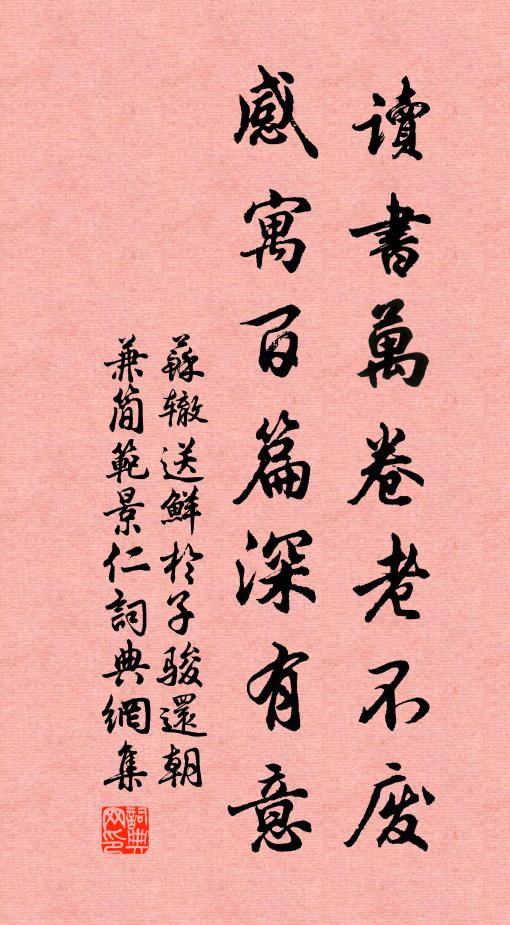 讀書萬卷老不废
感寓百篇深有意
蘇辙送鮮於子骏還朝
兼簡範景仁詞典網集
詞典
网印